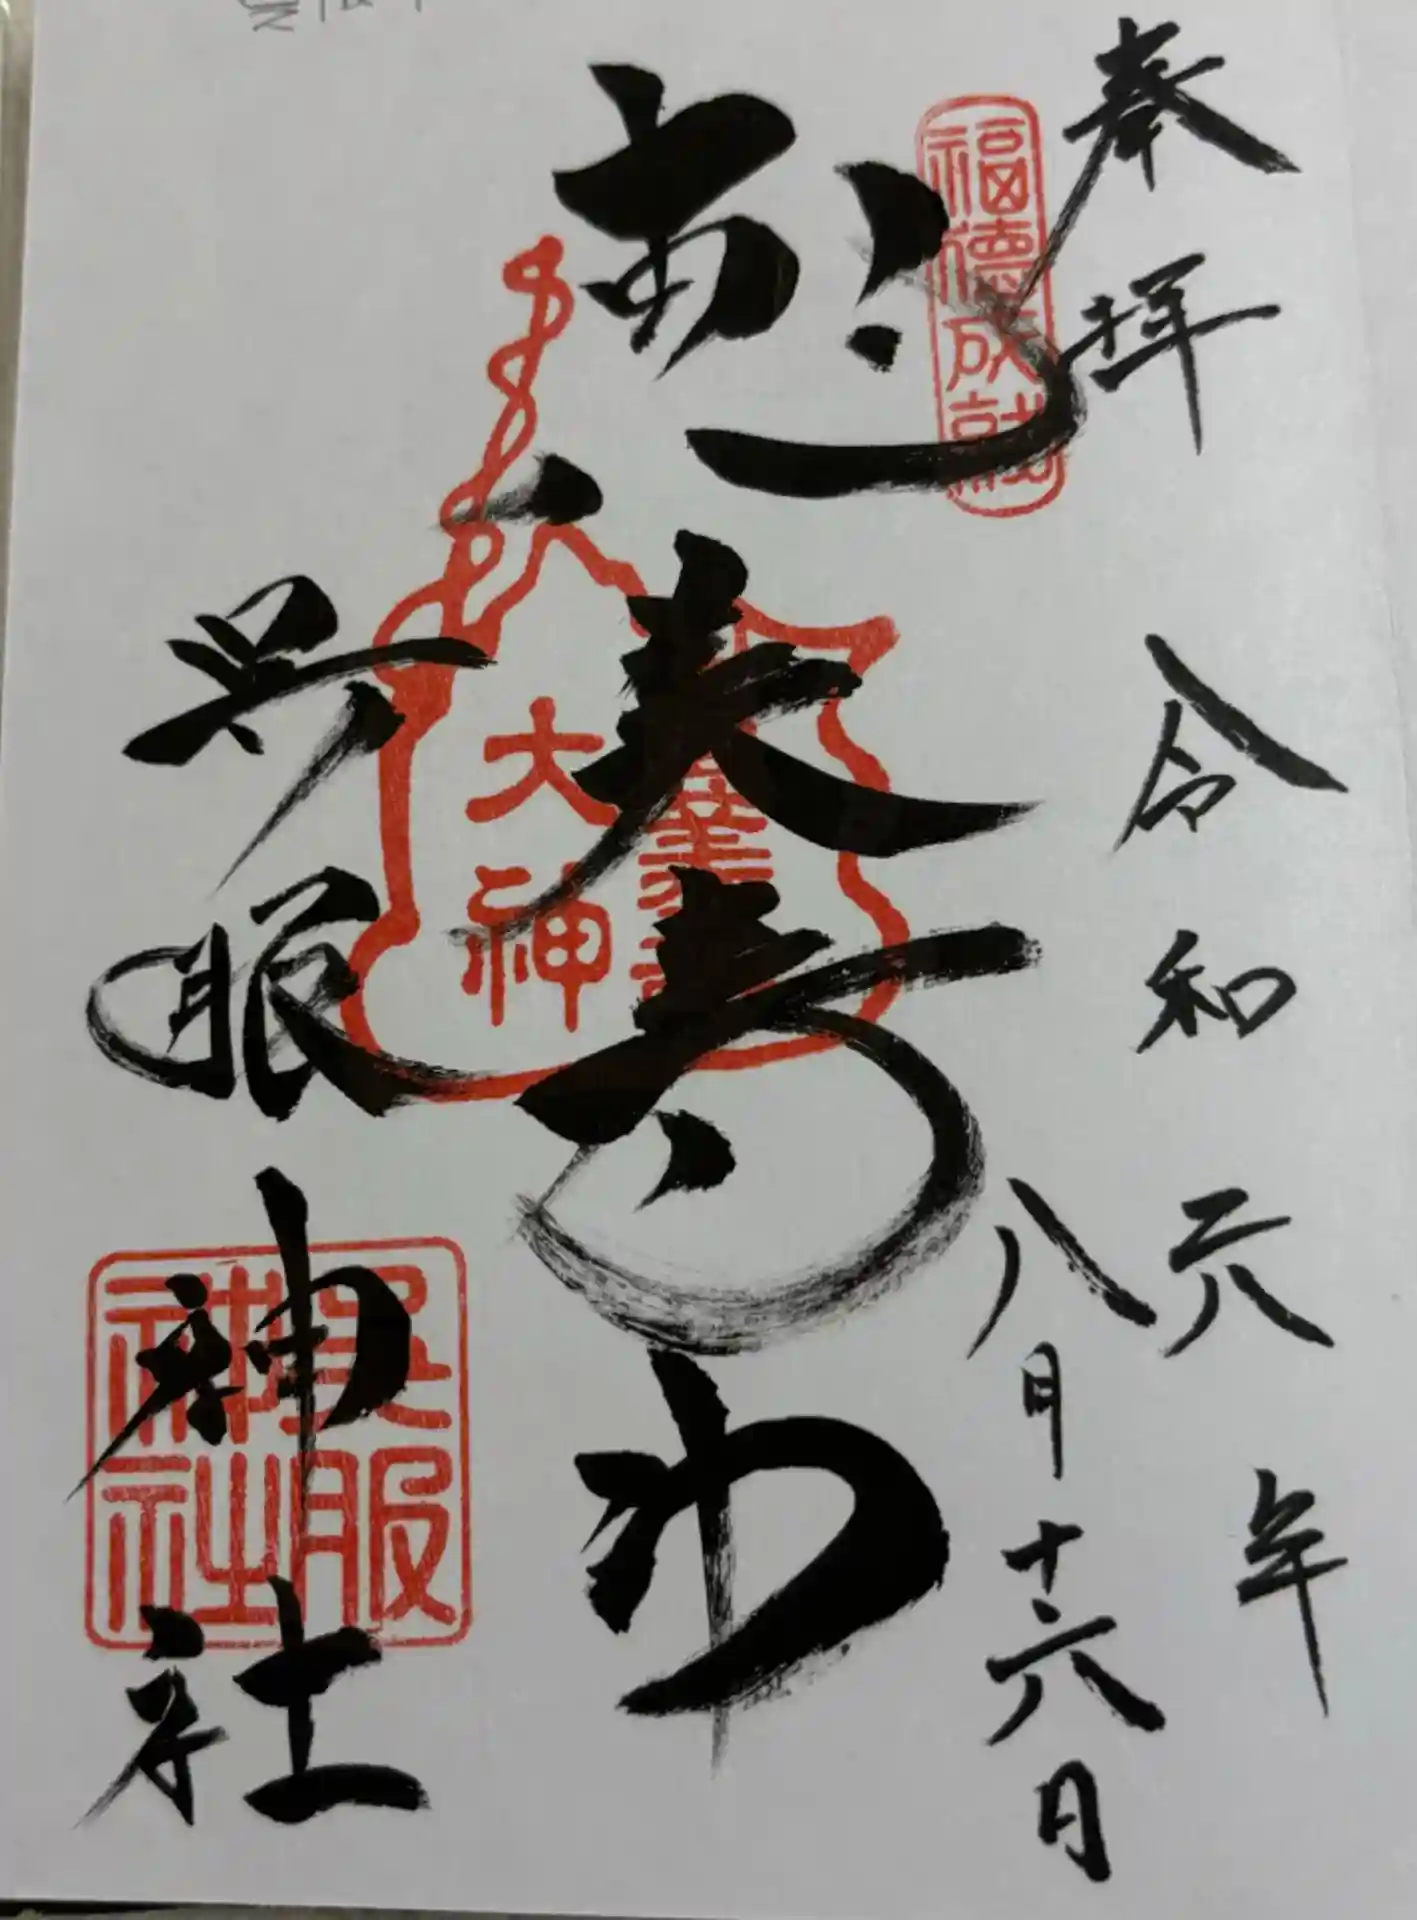 奉拝
福徳成就
令和六年
八月十六日
恵美寿神
大神
呉服神社
呉服神社